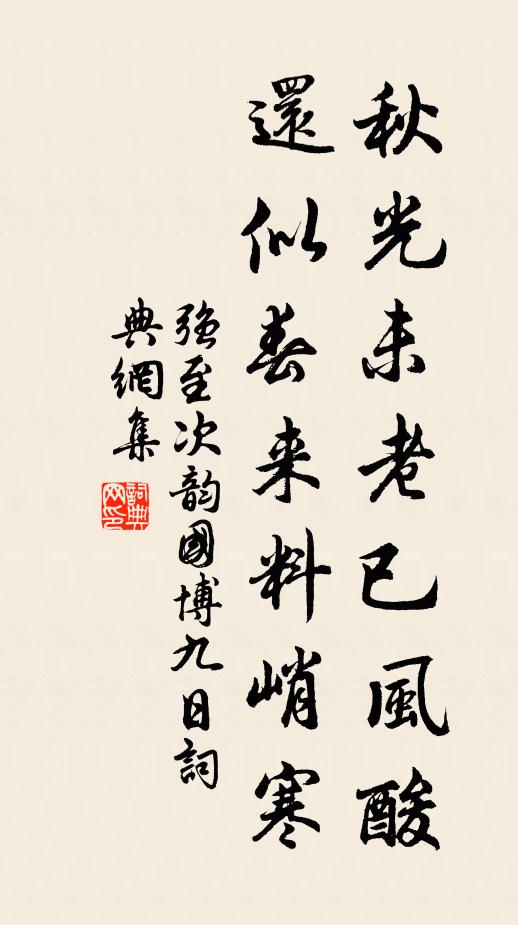 秋光未老已風酸
還似春来料峭寒
強至次韵國博九日詞
典網集
詞典網印